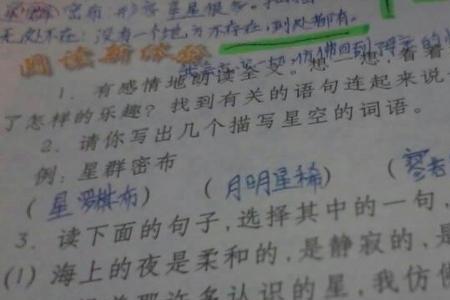 密布:形容星星很多。
无处不在:没有一个地方不存在,到处都有。
阅读新体会
1. 有感情地朗读全文。想一想,看着
了怎样的乐趣?找到有关的语句连起来说
2. 请你写出几个描写星空的词语。
例:星群密布
(星罗棋布) (月明星稀) (寥若
3. 读下面的句子,选择其中的一句,
(1)海上的夜是柔和的,是静寂的,是
许多认识的星,我仿佛